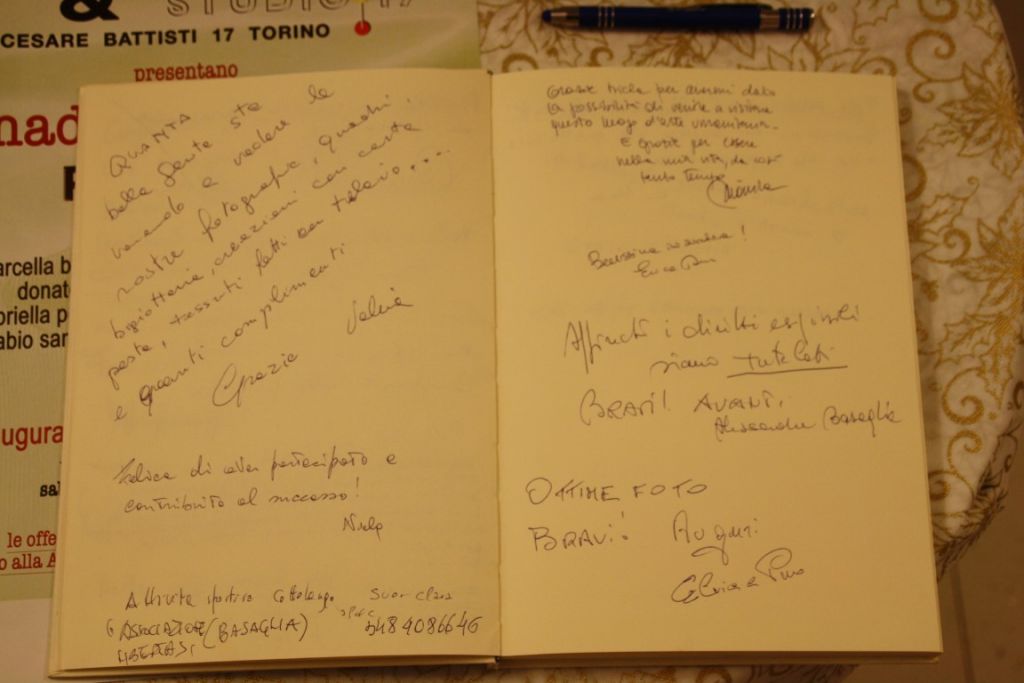 & STUDIO 17
CESARE BATTISTI 17 TORINO
presentano
nad
arcella b
donat
oriella p
abio sar
ugura
sal
le offe
o alla A
QUANTA
bella gente sta
venendo a vedere le
nostre fotografie, quadri,
bigiotteria, creazioni con carta
pesta, tessuti fatti con telaio....
e quanti complimenti
Grazie
Felice di aver partecipato e
contribuito al successo!
Attività sportiva Cottolengo Suor Clara
ASSOCIAZIONE (BASAGLIA)
3484086646
Grazie per avermi dato
la possibilità di venire a visitare
questo luogo d'arte umanitaria.
e grazie per essere
nella mia vita, da così
tanto tempo
Bellissima
Affinché i diritti esigibili
siano tutelati
BRAVI! AVANTI,
Alessandra Basaglia
OTTIME FOTO
BRAVI! Auguri
Elvira e Pino